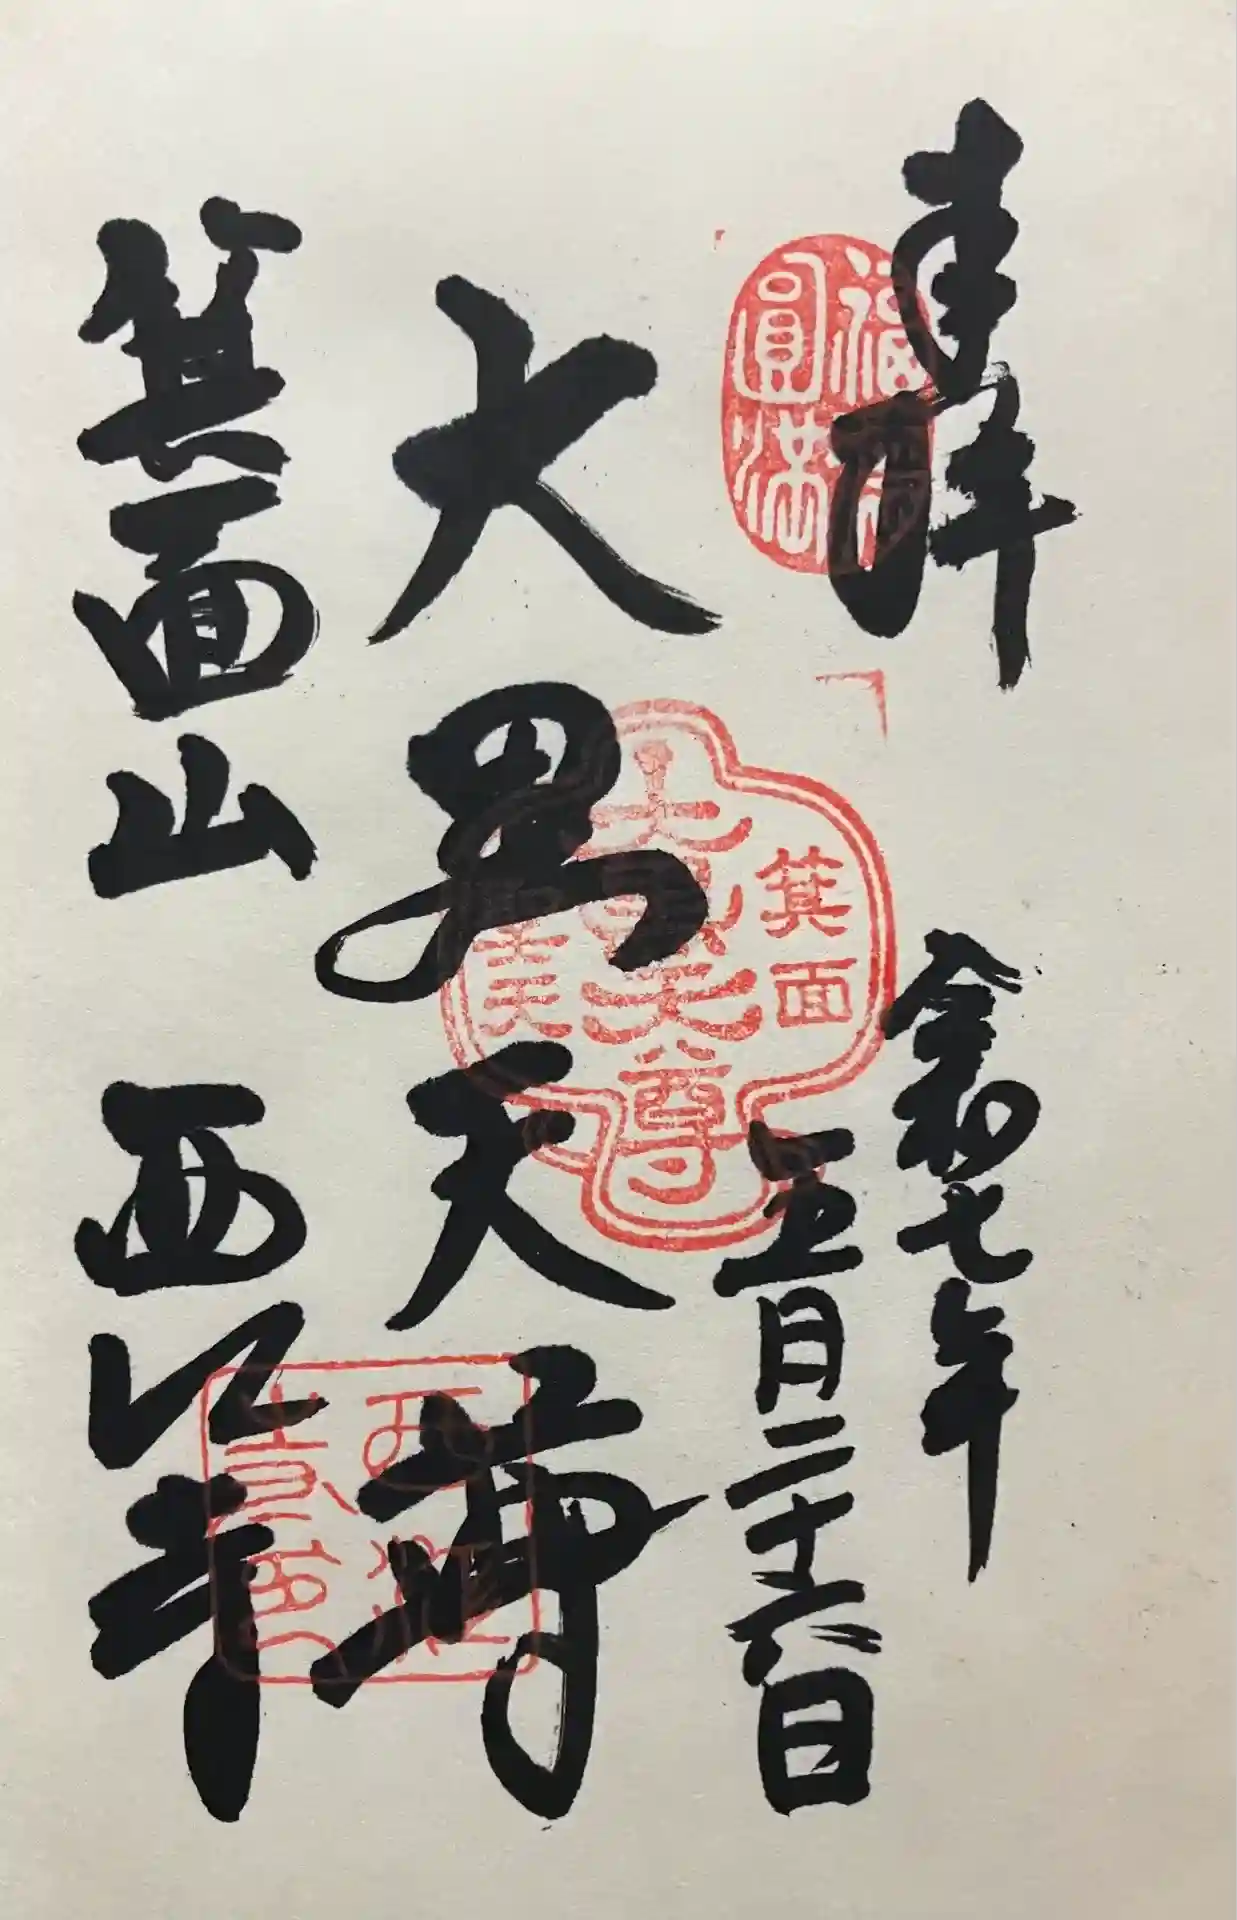 奉拝
令和七年
五月二十六日
福 圓満
大黒天尊
箕面
大黒天尊
箕面山 西江寺
西江寺